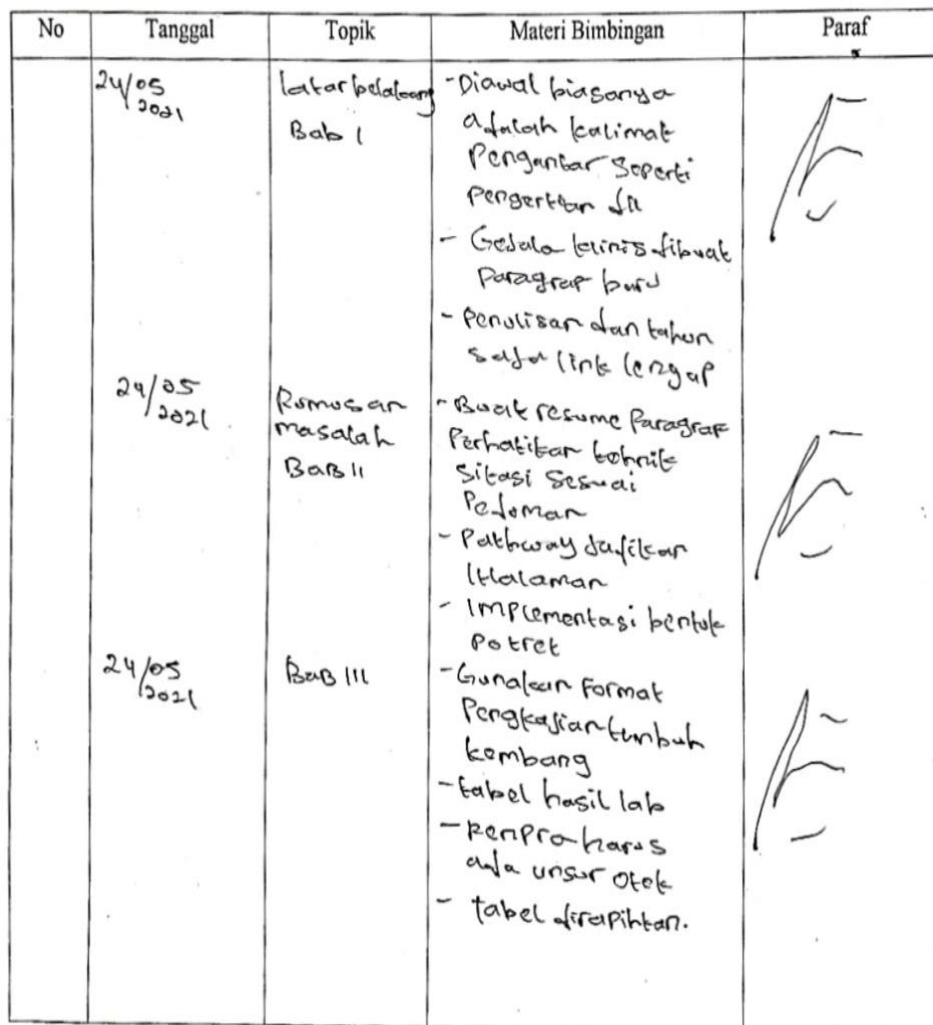 No Tanggal Topik Materi Bimbingan Paraf
24/05 2021
latar belakang
Bab I
- Diawal biasanya
adalah kalimat
Pengantar Seperti
pengertian dll
- Gejala klinis dibuat
Paragrap baru
- Penulisan dan tahun
saja link lengap
24/05 2021
Rumusan
masalah
BAB II
- Buat resume Paragraf
Perhatikan tehnik
sitasi sesuai
Pedoman
- Pathway jadikan
1 Halaman
- Implementasi bentuk
Potret
24/05 2021
BAB III
- Gunakan Format
Pengkajian tumbuh
kembang
- tabel hasil lab
- Renpra harus
ada unsur Otek
- tabel dirapihkan.